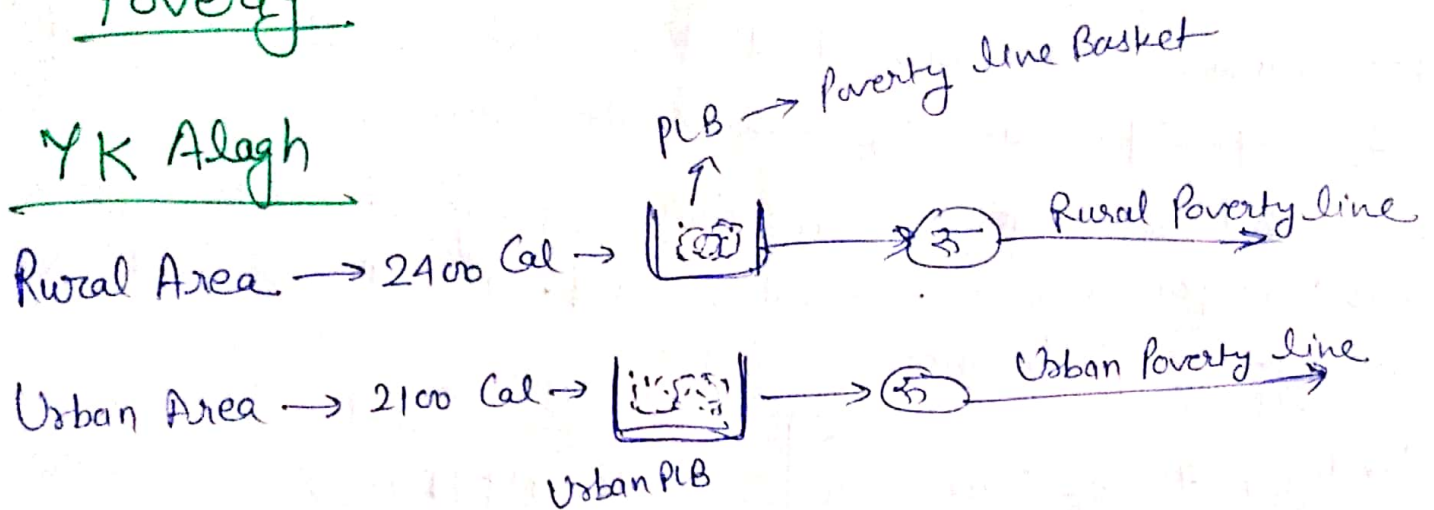 Poverty
YK Alagh
PLB → Poverty line Basket
Rural Area → 2400 Cal → → ₹ → Rural Poverty line
Urban Area → 2100 Cal → → ₹ → Urban Poverty line
Urban PLB